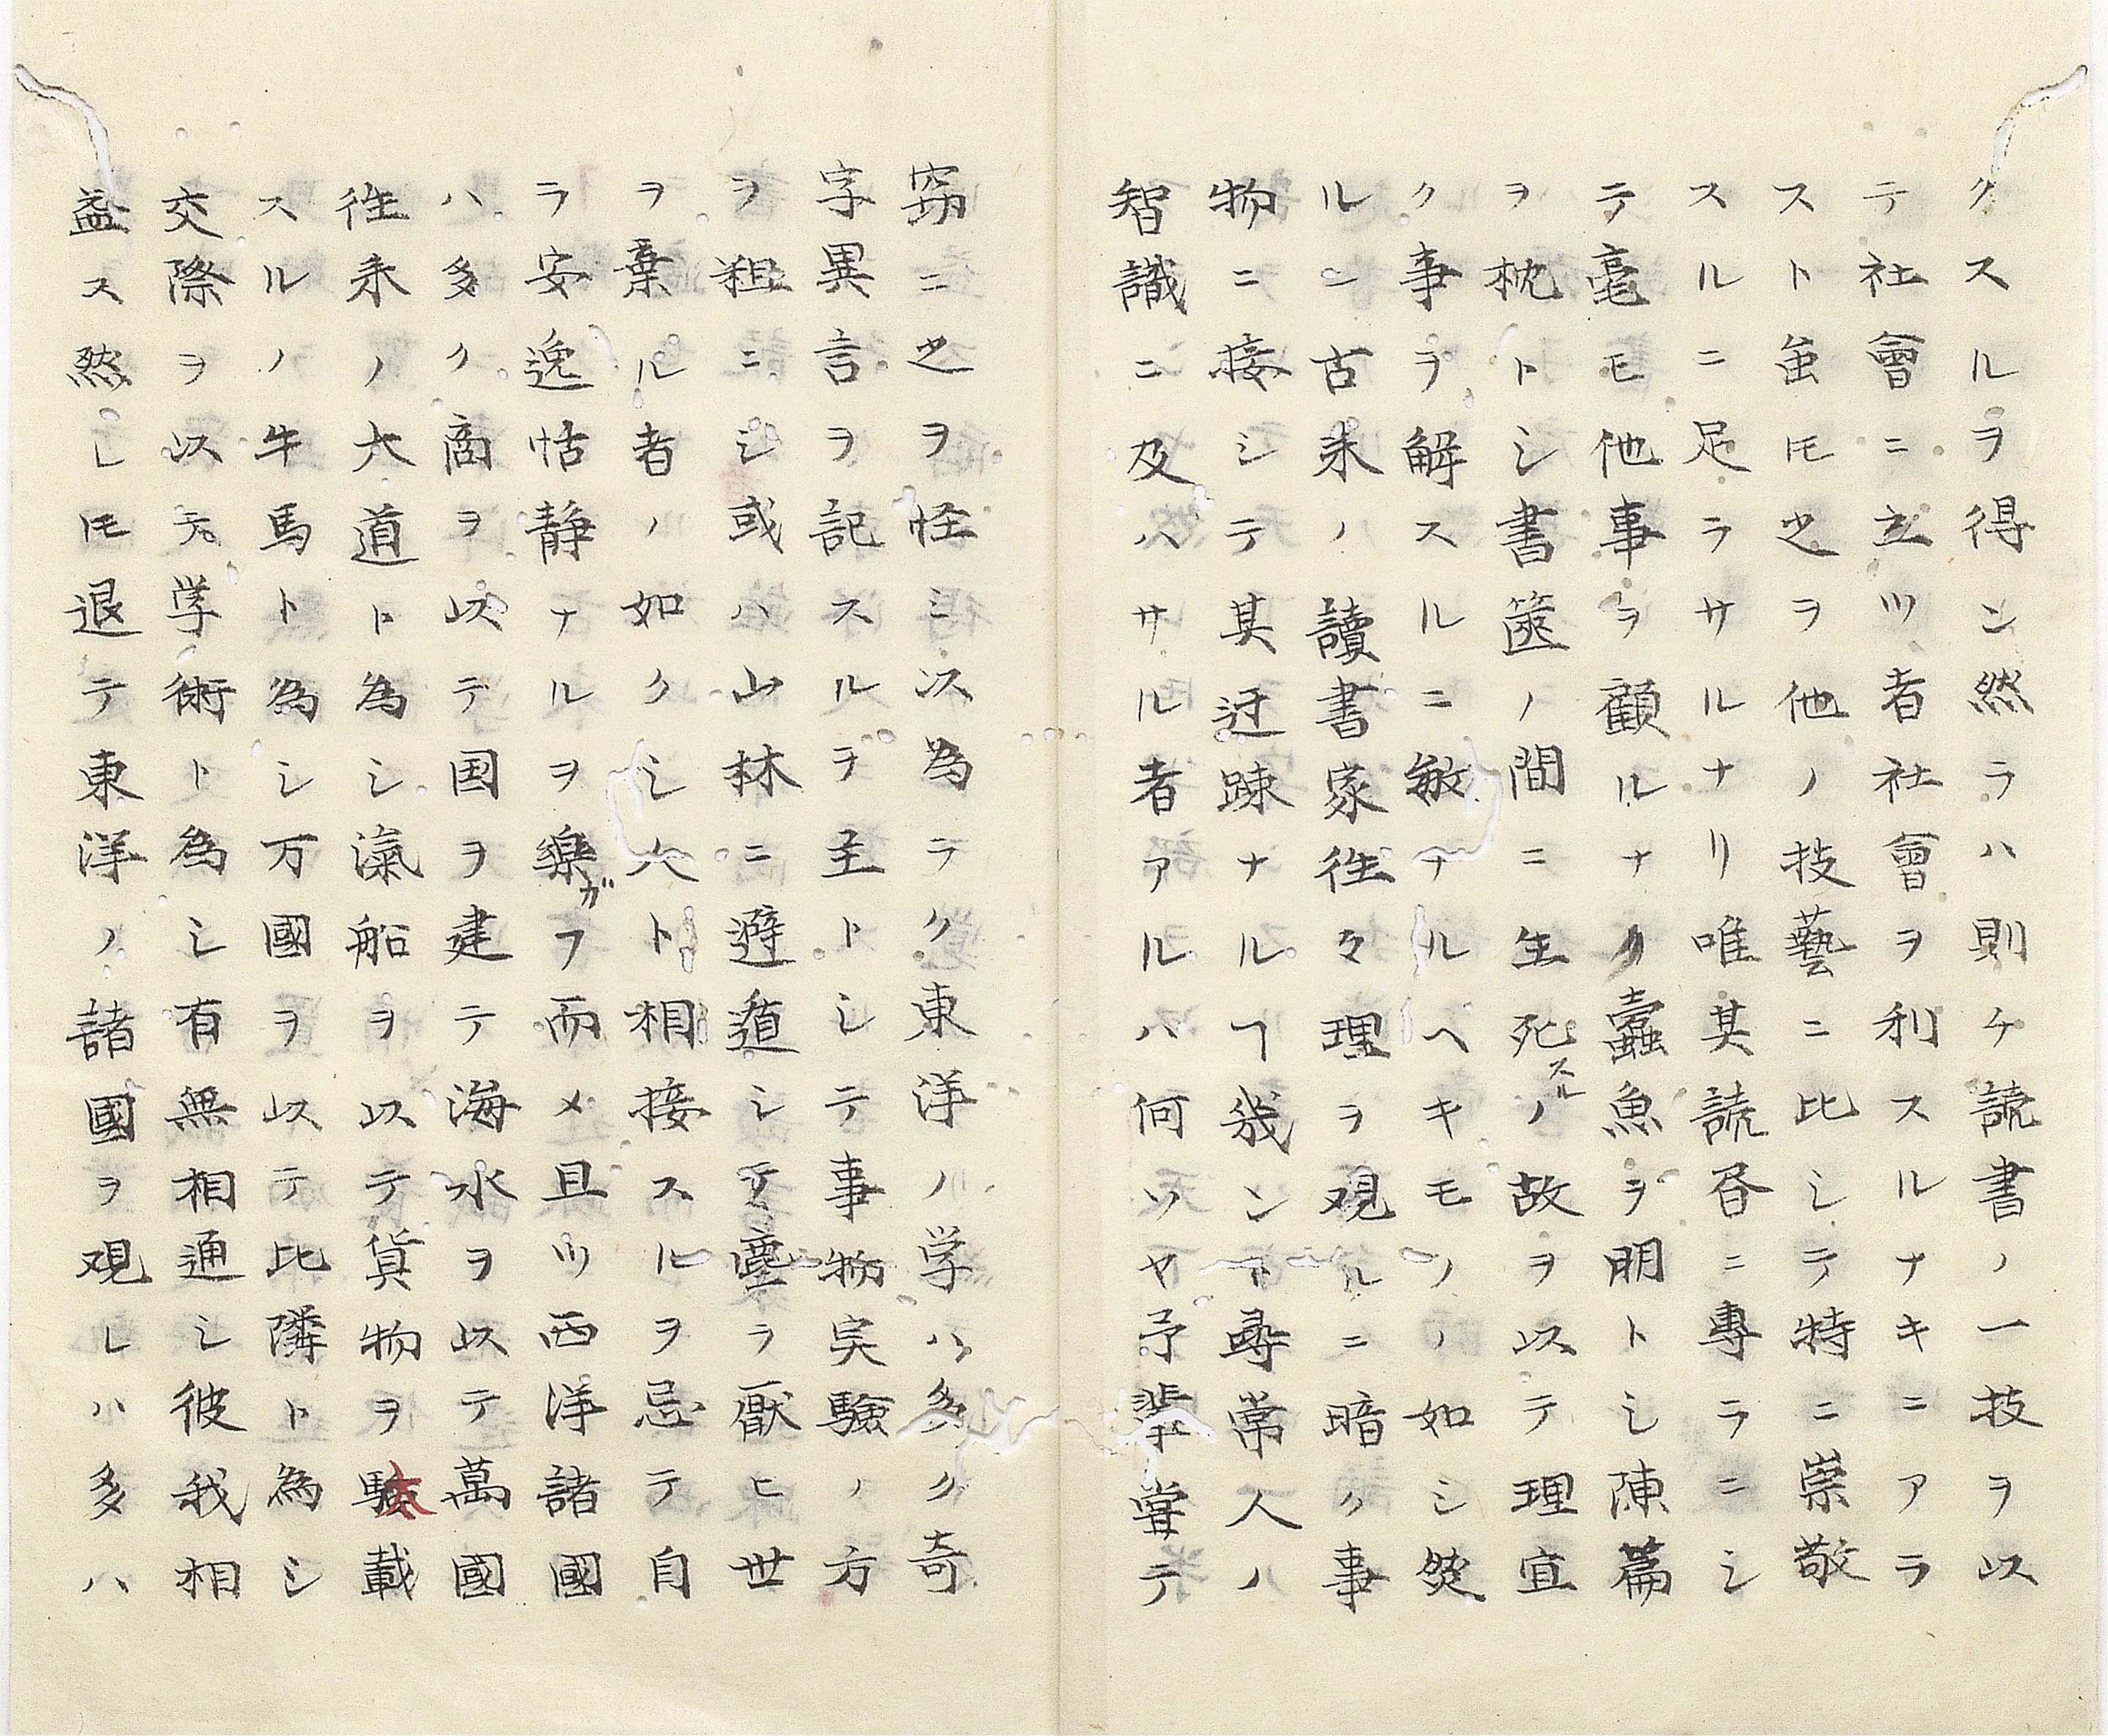 クスルヲ得ン然ラハ則ケ読書ノ一技ヲ以
テ社會ニ立ツ者社會ヲ利スルナキニアラ
スト虽𪜈之ヲ他ノ技藝ニ比シテ特ニ崇敬
スルニ足ラサルナリ唯其読昏ニ專ラニシ
テ毫モ他事ヲ顧ルナク蠧魚ヲ朋トシ陳篇
ヲ枕トシ書篋ノ間ニ生死スルノ故ヲ以テ理宜
ク事ヲ解スルニ敏ナルヘキモノノ如シ然
ルニ古来ノ讀書家往々理ヲ観ルニ暗ク事
物ニ接シテ其迂踈ナルヿ幾ント尋常人ノ
智識ニ及ハサル者アルハ何ソヤ予輩嘗テ
窃ニ之ヲ怪ミ以為テク東洋ノ学ハ多ク奇
字異言ヲ記スルヲ主トシテ事物実驗ノ方
ヲ粗ニシ或ハ山林ニ避遁シテ塵ヲ厭ヒ世
ヲ棄ル者ノ如クシ人ト相接スルヲ忌テ自
ラ安逸恬静ナルヲ樂ガフ而メ且ツ西洋諸國
ハ多ク商ヲ以テ国ヲ建テ海水ヲ以テ萬國
往来ノ大道ト為シ瀛船ヲ以テ貨物ヲ駄載
スルノ牛馬ト為シ万國ヲ以テ比隣ト為シ
交際ヲ以テ学術ト為シ有無相通シ彼我相
益ス然レ𪜈退テ東洋ノ諸國ヲ観レハ多ハ